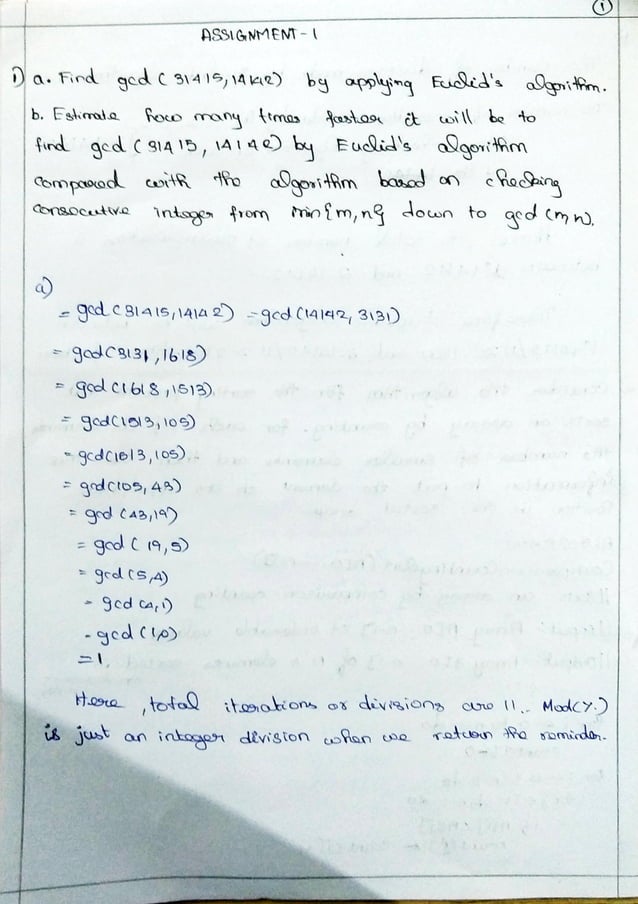 1
ASSIGNMENT - 1
1) a. Find gcd (31415, 14142) by applying Euclid's algorithm.
b. Estimate how many times faster it will be to
find gcd (31415, 14142) by Euclid's algorithm
compared with the algorithm based on checking
consecutive integer from min{m,n} down to gcd (m,n).
a)
= gcd (31415, 14142) = gcd (14142, 3131)
= gcd (3131, 1618)
= gcd (1618, 1513)
= gcd (1513, 105)
= gcd (1513, 105)
= gcd (105, 43)
= gcd (43, 19)
= gcd (19, 5)
= gcd (5,4)
= gcd (4,1)
= gcd (1,0)
= 1.
Here, total iterations or divisions are 11.. Mod(%)
is just an integer division when we return the reminder.